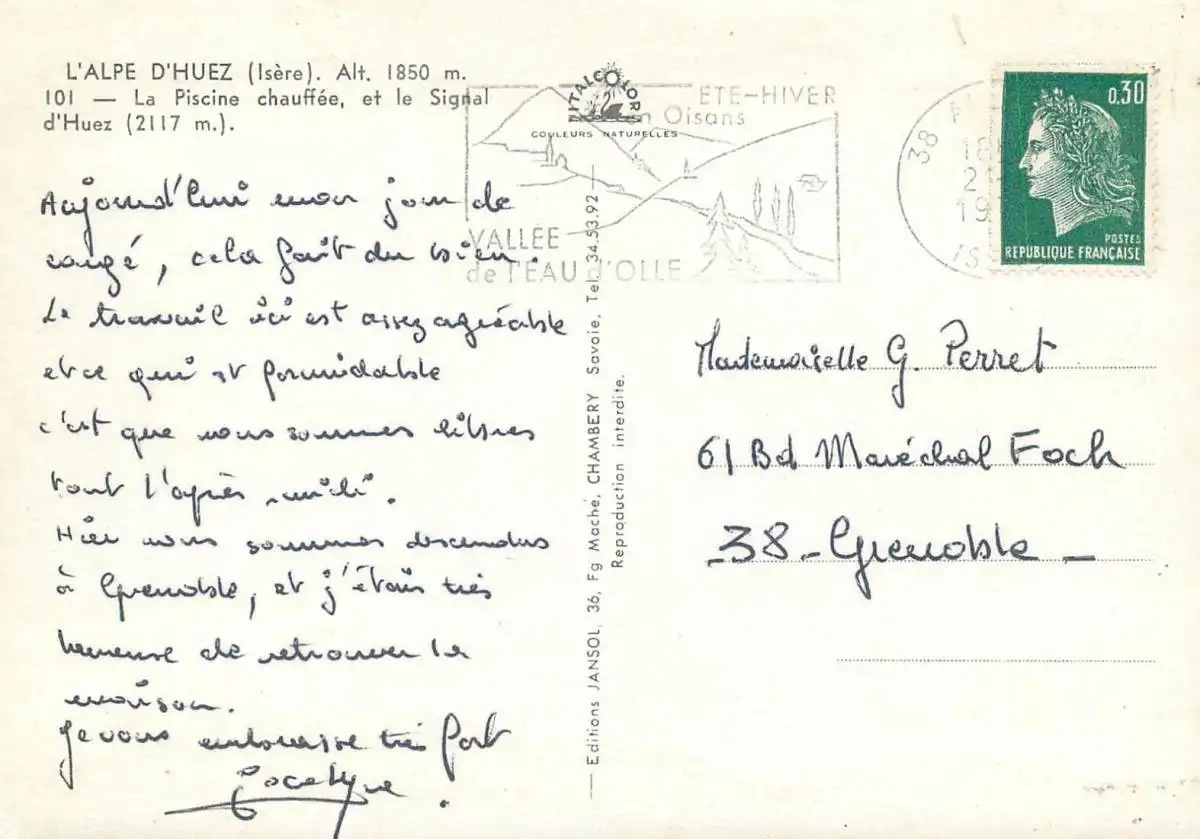 L'ALPE D'HUEZ (Isère). Alt. 1850 m.
101 — La Piscine chauffée, et le Signal
d'Huez (2117 m.).
Aujourd'hui mon jour de
congé, cela fait du bien.
Le travail ici est assez agréable
et ce qui est formidable
c'est que nous sommes libres
tout l'après-midi.
Hier nous sommes descendus
à Grenoble, et j'étais très
heureuse de retrouver la
maison.
Je vous embrasse très fort
Jocelyne.
VITALCOLOR
COULEURS NATURELLES
ETE-HIVER
en Oisans
VALLÉE
de l'EAU d'OLLE
— Editions JANSOL, 36, Fg Maché, CHAMBERY Savoie. Tel. 34.53.92 —
Reproduction interdite.
38
18
21
19
IS
0,30
POSTES
REPUBLIQUE FRANÇAISE
Mademoiselle G. Perret
61 Bd Maréchal Foch
-38-Grenoble-